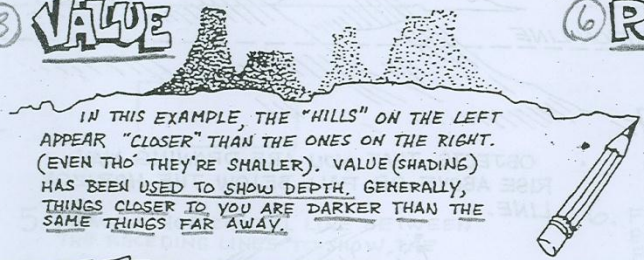 3 VALUE
6 R
IN THIS EXAMPLE, THE "HILLS" ON THE LEFT
APPEAR "CLOSER" THAN THE ONES ON THE RIGHT.
(EVEN THO' THEY'RE SMALLER). VALUE (SHADING)
HAS BEEN USED TO SHOW DEPTH. GENERALLY,
THINGS CLOSER TO YOU ARE DARKER THAN THE
SAME THINGS FAR AWAY.